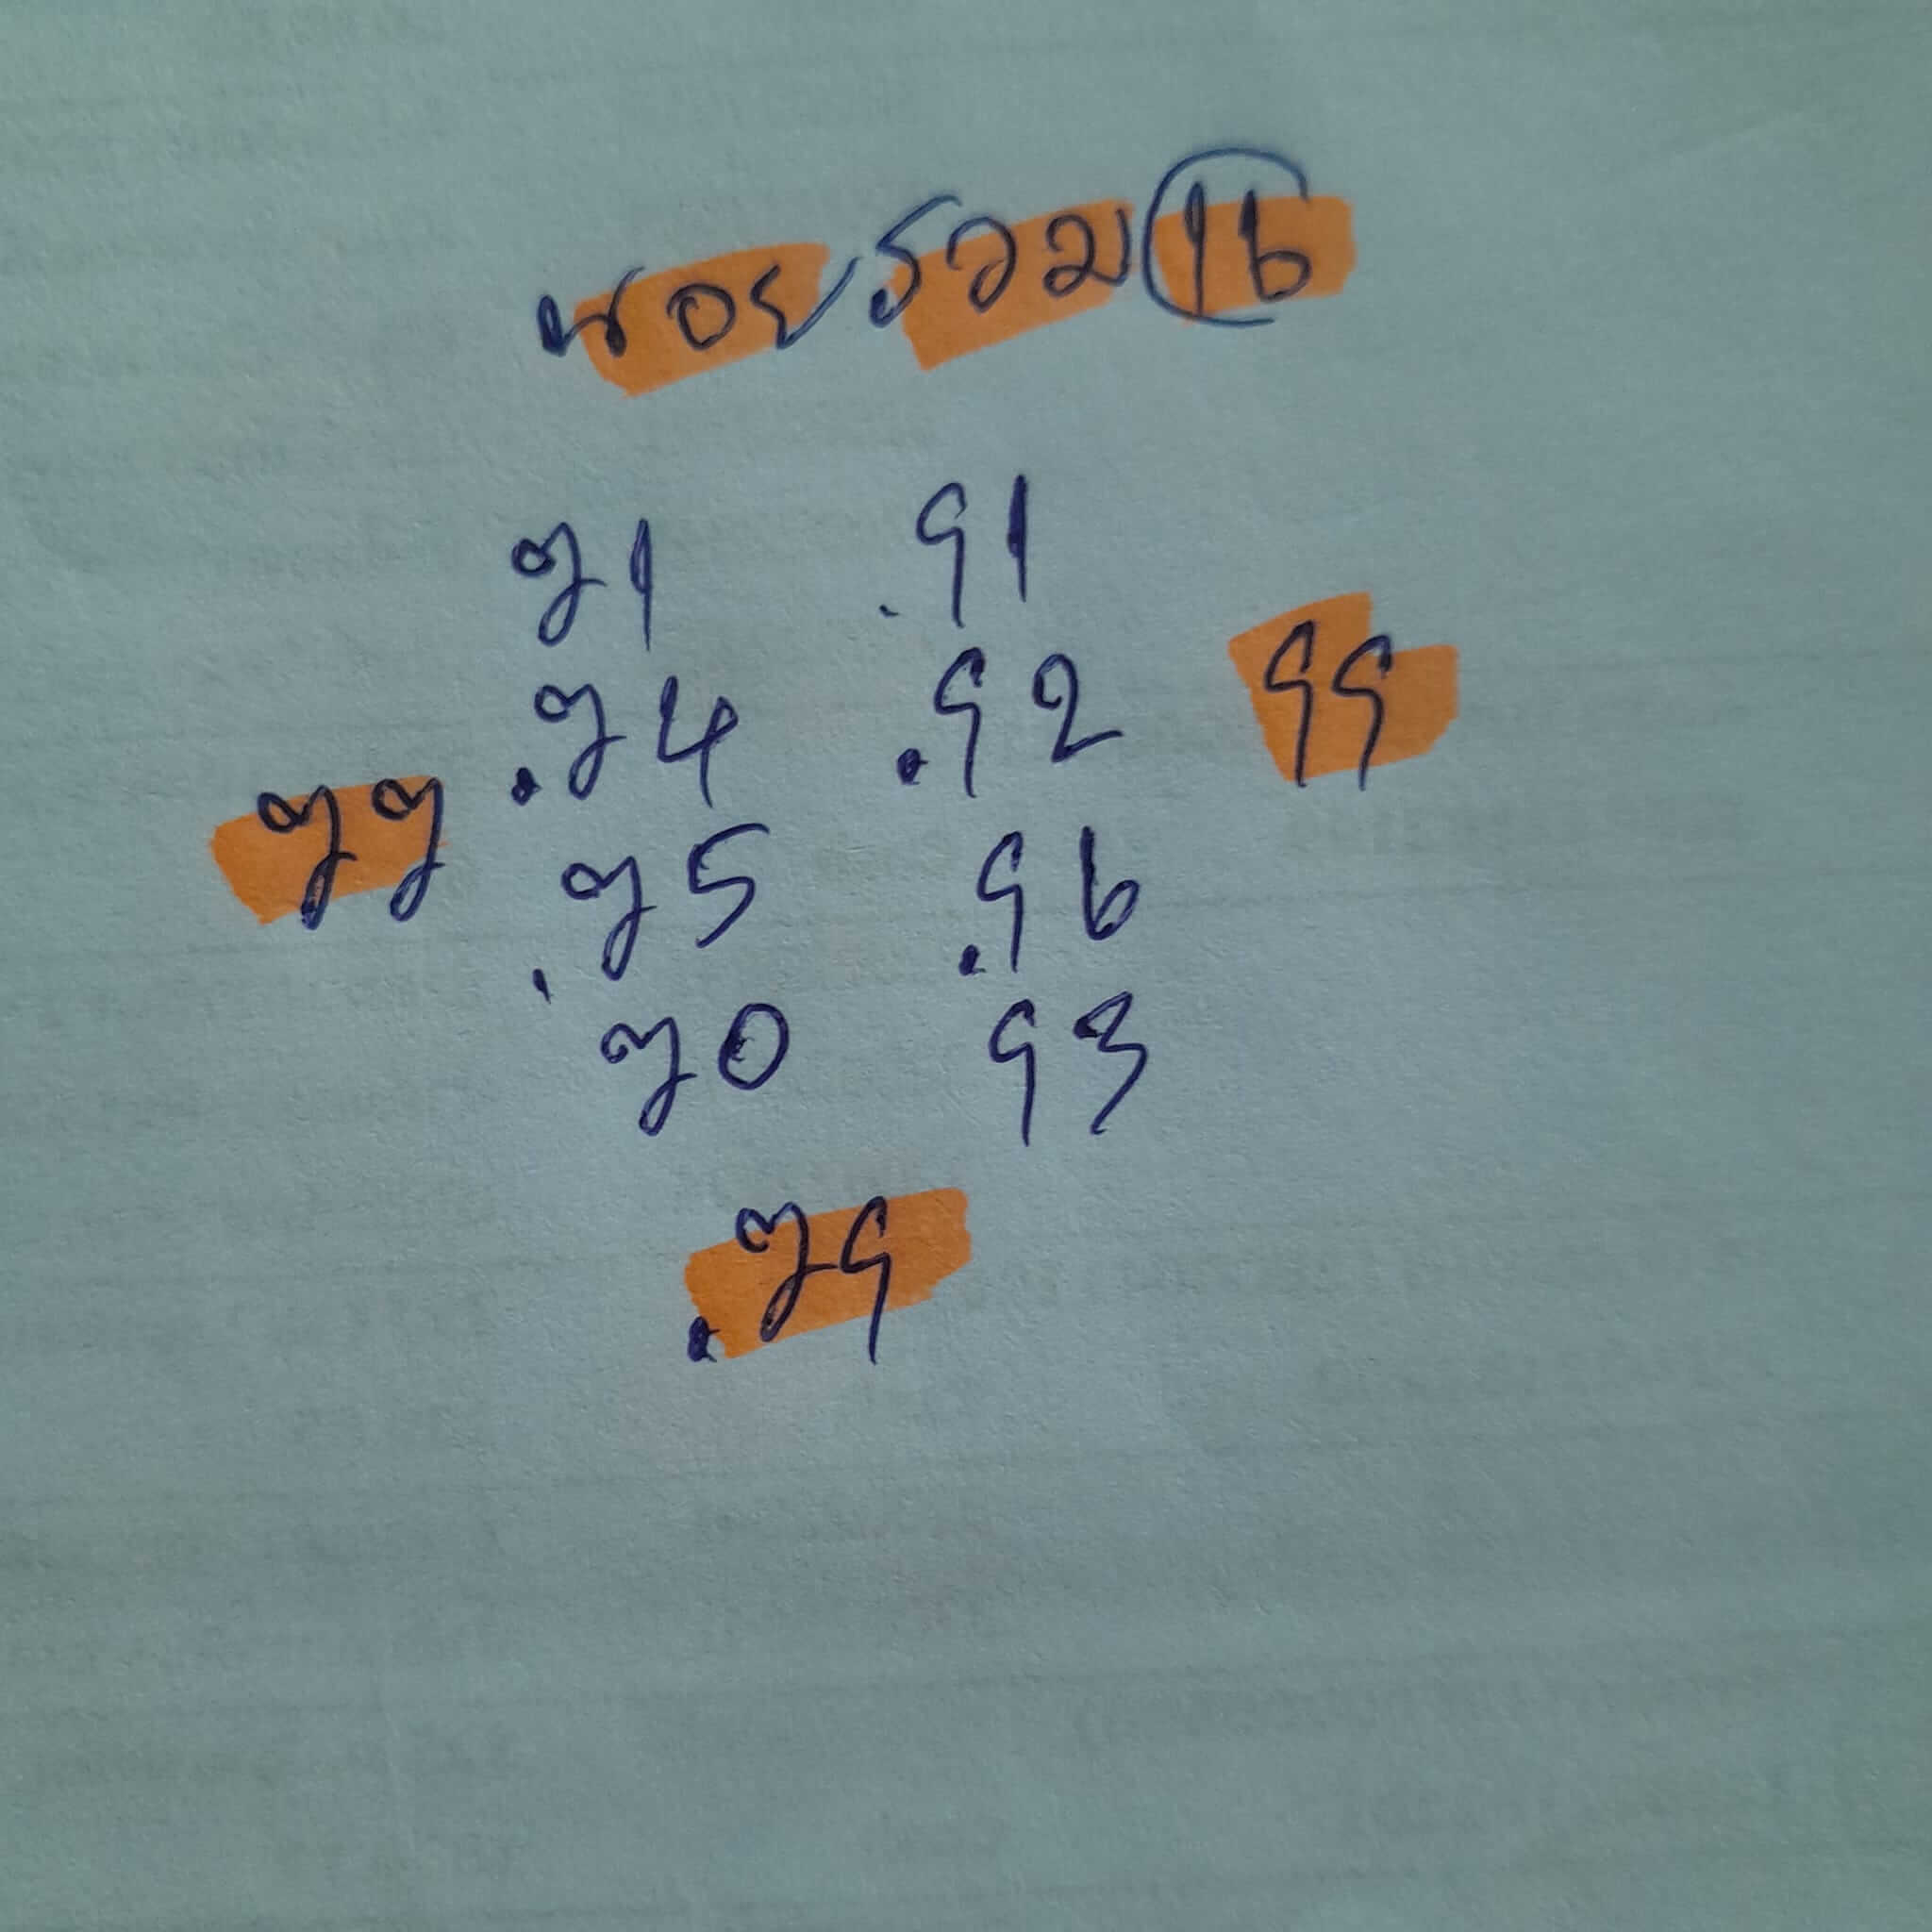 หอยรวม 16
71 .91
.74 .92 99
77
.75 .96
70 93
.79